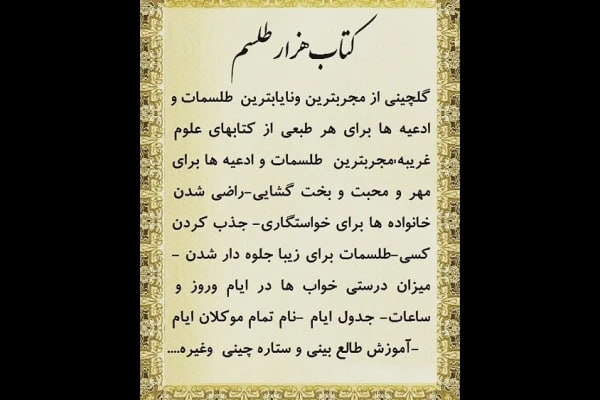 کتاب هزار طلسم
گلچینی از مجربترین ونایابترین طلسمات و
ادعیه ها برای هر طبعی از کتابهای علوم
غریبه،مجربترین طلسمات و ادعیه ها برای
مهر و محبت و بخت گشایی-راضی شدن
خانواده ها برای خواستگاری- جذب کردن
کسی-طلسمات برای زیبا جلوه دار شدن -
میزان درستی خواب ها در ایام وروز و
ساعات- جدول ایام -نام تمام موکلان ایام
-آموزش طالع بینی و ستاره چینی وغیره....